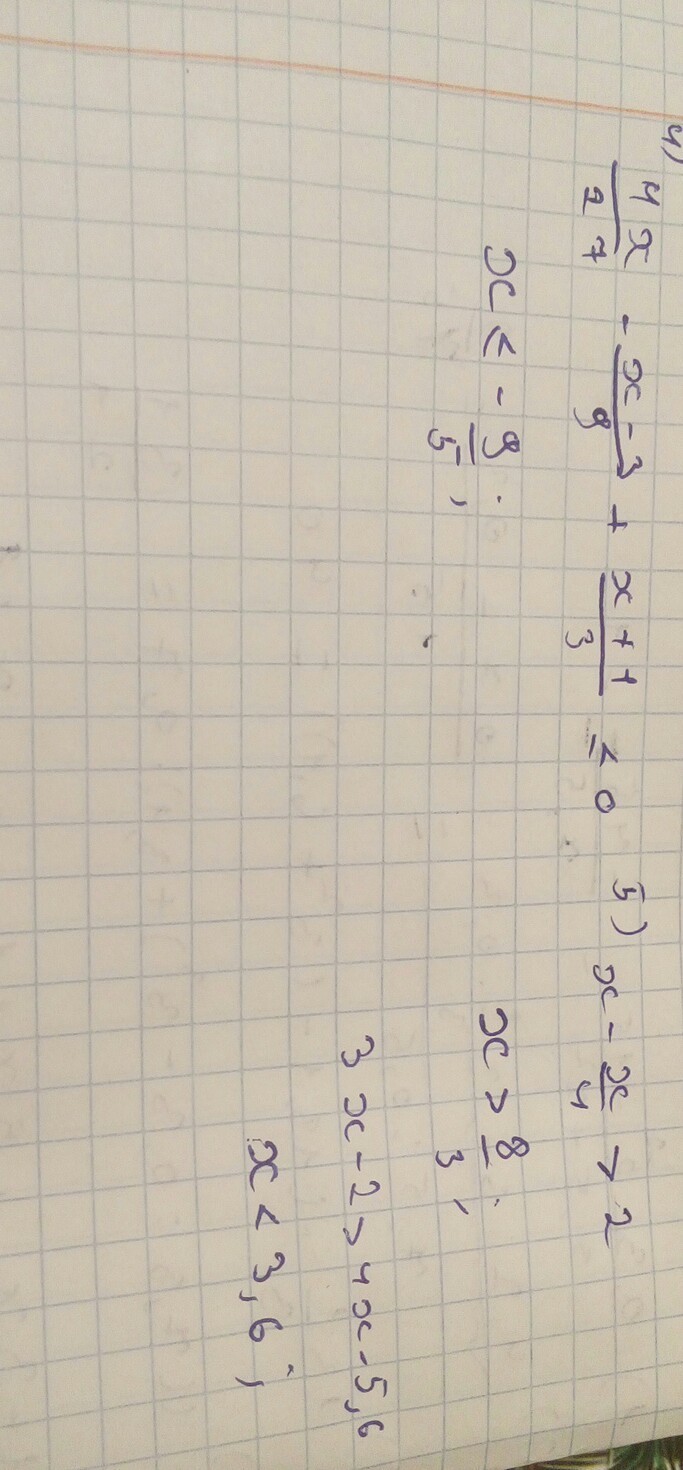 4) 4x/27 - x-3/9 + x+1/3 ≤ 0 5) x - x/4 > 2
x < -9/5; x > 8/3;
3x-2 > 4x-5,6
x < 3,6;